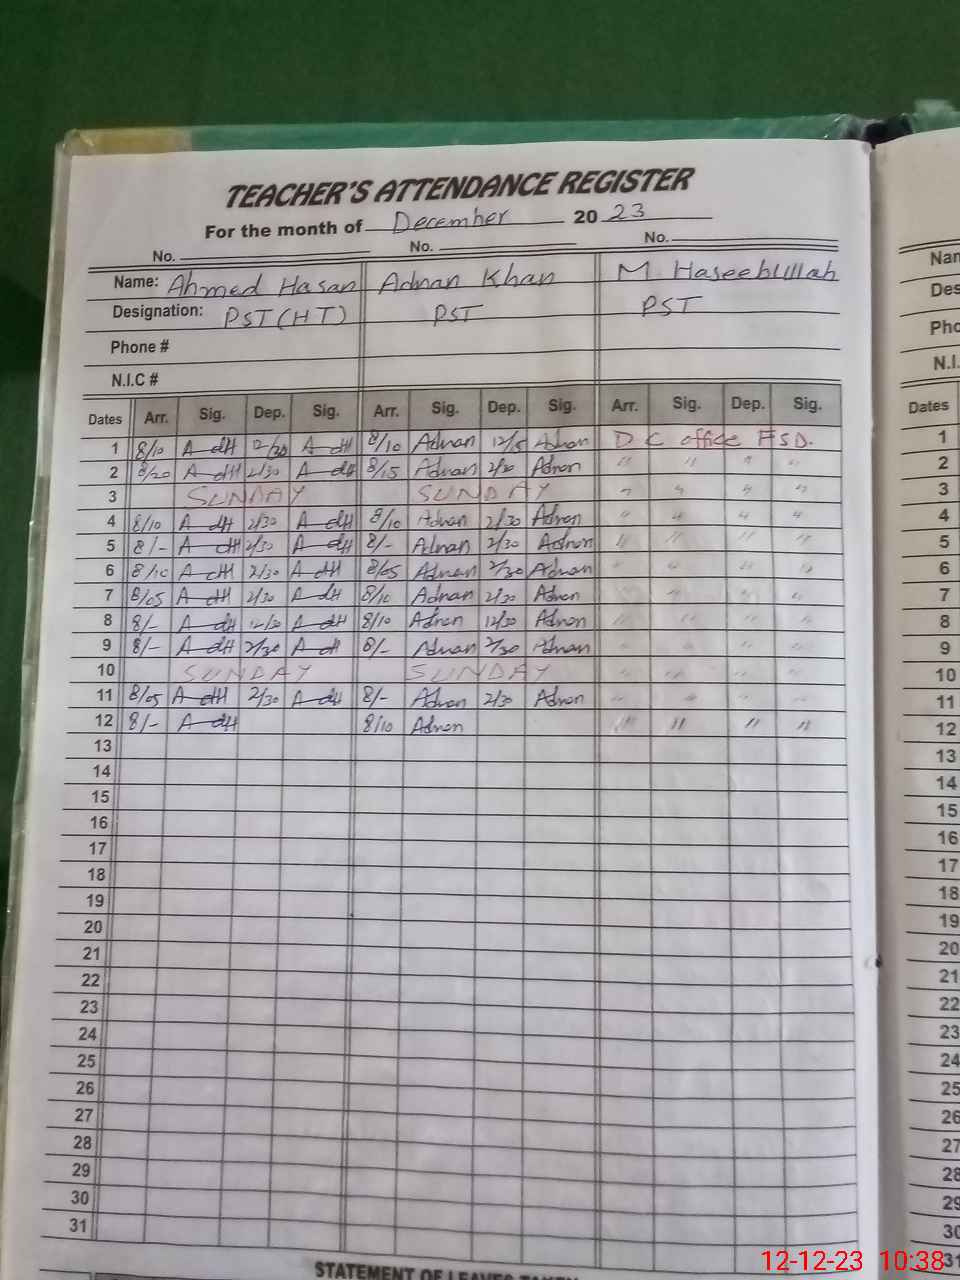 TEACHER'S ATTENDANCE REGISTER
For the month of December 2023
No. No. No.
Name: Ahmed Hasan Adnan Khan M Haseebullah
Designation: PST (HT) PST PST
Phone #
N.I.C #
Dates Arr. Sig. Dep. Sig. Arr. Sig. Dep. Sig. Arr. Sig. Dep. Sig.
1 8/10 12/30 8/10 Adnan 12/5 Adnan D C office FSD.
2 8/20 2/30 8/15 Adnan 2/30 Adnan " " " "
3 SUNDAY SUNDAY " " " "
4 8/10 2/30 8/10 Adnan 2/30 Adnan " " " "
5 8/- 2/30 8/- Adnan 2/30 Adnan " " " "
6 8/10 2/30 8/05 Adnan 2/30 Adnan " " " "
7 8/05 2/30 8/10 Adnan 2/30 Adnan " " " "
8 8/- 12/30 8/10 Adnan 12/30 Adnan " " " "
9 8/- 2/30 8/- Adnan 2/30 Adnan " " " "
10 SUNDAY SUNDAY " " " "
11 8/05 2/30 8/- Adnan 2/30 Adnan " " " "
12 8/- 8/10 Adnan " " " "
13
14
15
16
17
18
19
20
21
22
23
24
25
26
27
28
29
30
31
STATEMENT OF LEAVES TAKEN
Nam
Des
Pho
N.I.
Dates
1
2
3
4
5
6
7
8
9
10
11
12
13
14
15
16
17
18
19
20
21
22
23
24
25
26
27
28
29
30
31
12-12-23 10:38